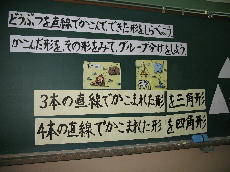 どうぶつを直線でかこんで、できた形をしらべよう。
かこんだ形を、その形をみて、グループ分けをしよう。
3本の直線でかこまれた形を三角形
4本の直線でかこまれた形を四角形